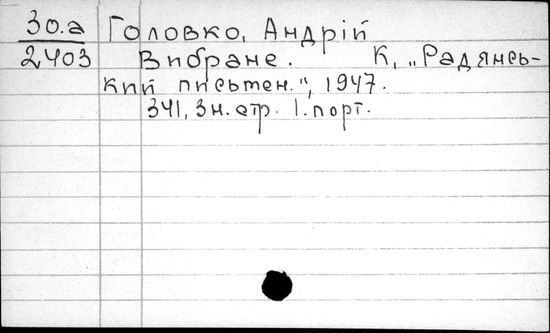 30.a Головко, Андрій
2403 Вибране. К, „Радянсь-
кий письмен.", 1947.
341, 3 н. стр. 1. порт.